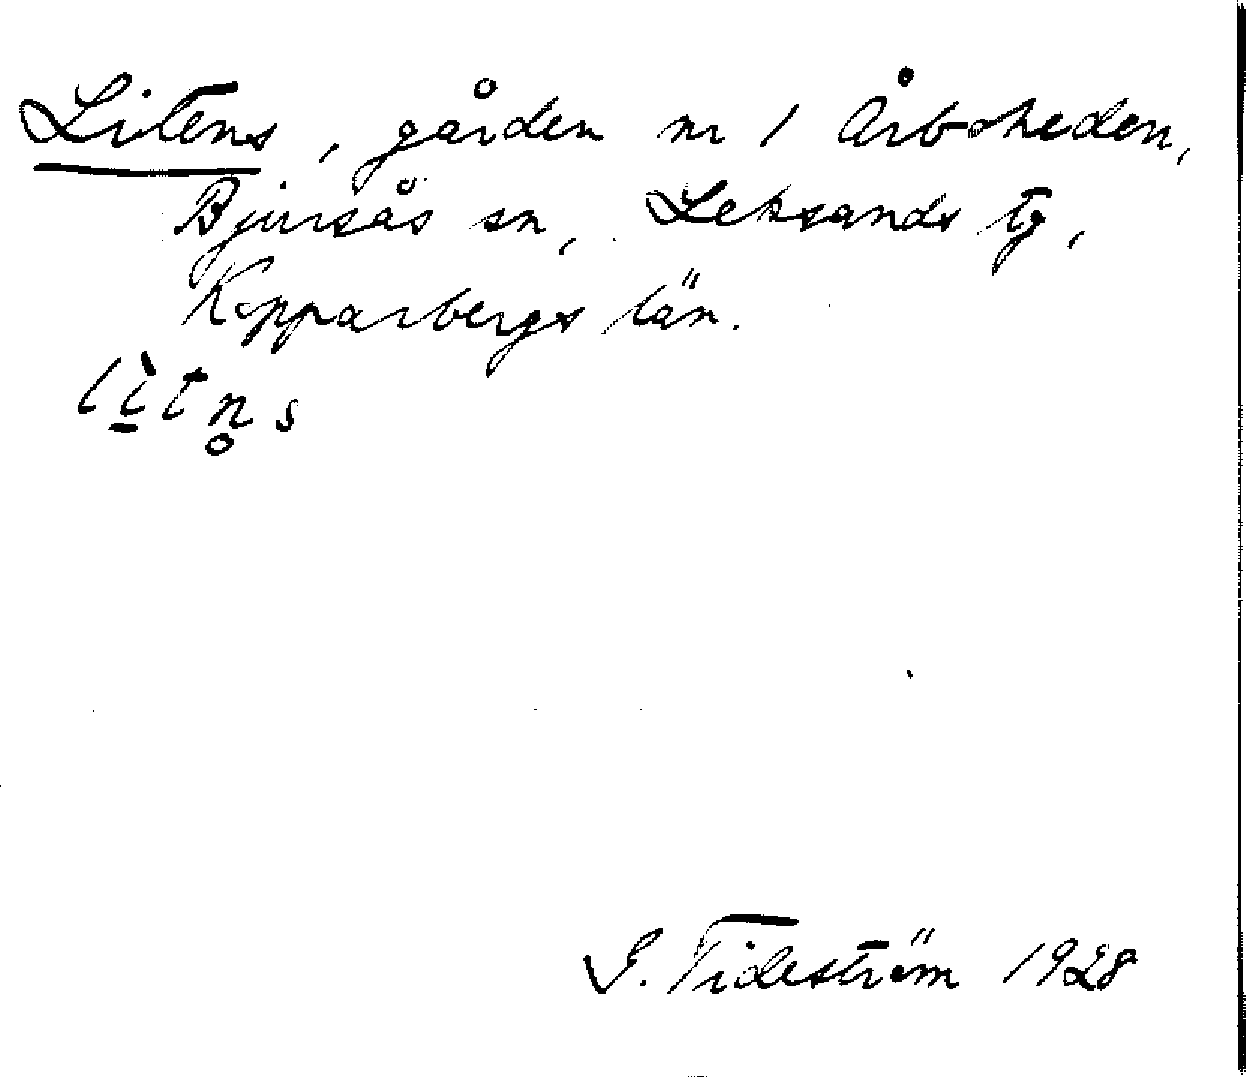 Litens, gården nr 1 Årboheden,
Bjursås sn, Leksands tg,
Kopparbergs län.
lì̱tn̥s
G. Tideström 1928